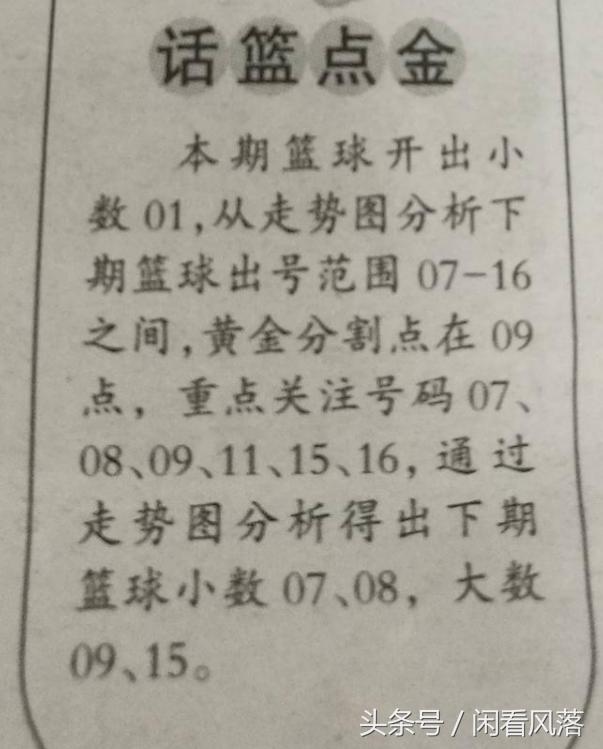 话篮点金
本期篮球开出小
数01,从走势图分析下
期篮球出号范围07-16
之间,黄金分割点在09
点，重点关注号码07、
08、09、11、15、16,通过
走势图分析得出下期
篮球小数07、08，大数
09、15。
头条号 / 闲看风落